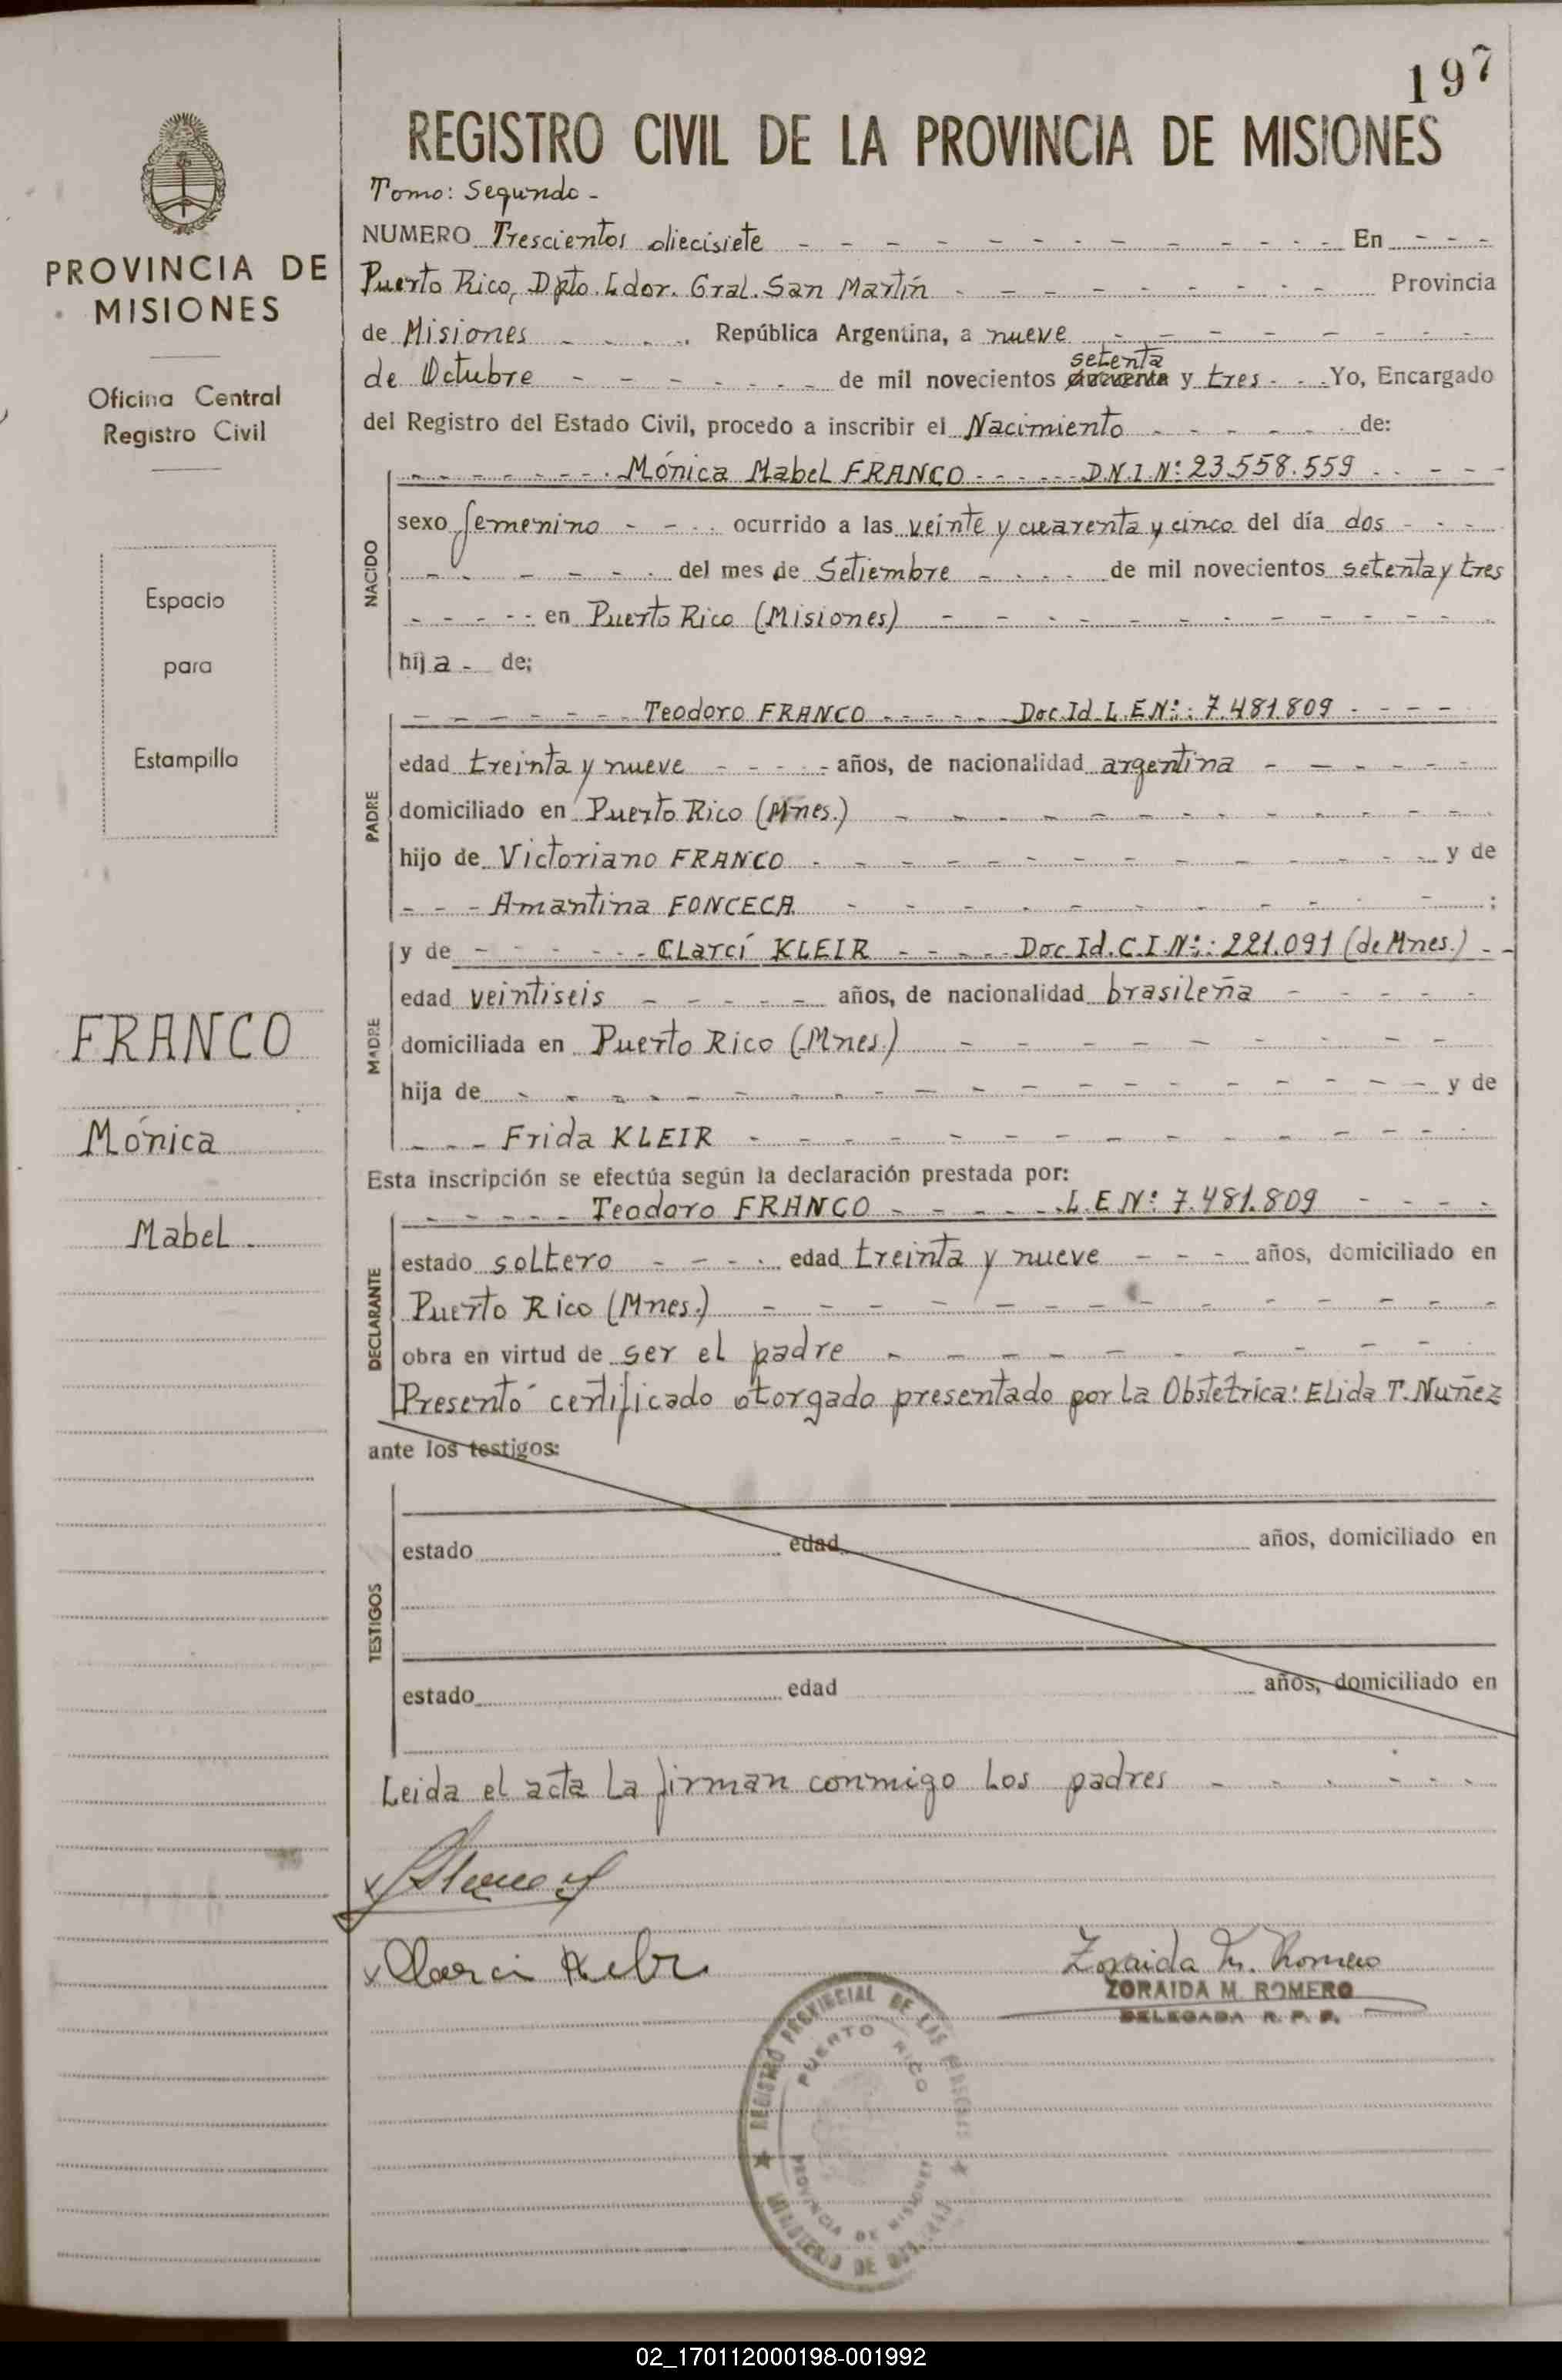 197
REGISTRO CIVIL DE LA PROVINCIA DE MISIONES
PROVINCIA DE
MISIONES
Oficina Central
Registro Civil
Espacio
para
Estampilla
FRANCO
Mónica
Mabel
Tomo: Segundo -
NUMERO Trescientos diecisiete - En
Puerto Rico, Dpto. Ldor. Gral. San Martín - Provincia
de Misiones - República Argentina, a nueve -
de Octubre - de mil novecientos setenta y tres - Yo, Encargado
del Registro del Estado Civil, procedo a inscribir el Nacimiento - de:
NACIDO
Mónica Mabel FRANCO - D.N.I.Nº: 23.558.559
sexo femenino - ocurrido a las veinte y cuarenta y cinco del día dos -
del mes de Setiembre - de mil novecientos setenta y tres
en Puerto Rico (Misiones) -
hija - de;
PADRE
Teodoro FRANCO - Doc. Id. L.E.Nº: 7.481.809 -
edad treinta y nueve - años, de nacionalidad argentina -
domiciliado en Puerto Rico (Mnes.) -
hijo de Victoriano FRANCO - y de
Amantina FONCECA - ;
MADRE
y de - Clarcí KLEIR - Doc. Id. C.I.Nº: 221.091 (de Mnes.) -
edad veintiseis - años, de nacionalidad brasileña -
domiciliada en Puerto Rico (Mnes.) -
hija de - y de
Frida KLEIR -
Esta inscripción se efectúa según la declaración prestada por:
DECLARANTE
Teodoro FRANCO - L.E.Nº: 7.481.809 -
estado soltero - edad treinta y nueve - años, domiciliado en
Puerto Rico (Mnes.) -
obra en virtud de ser el padre -
Presentó certificado otorgado presentado por la Obstetrica: Elida T. Nuñez
ante los testigos:
TESTIGOS
estado edad años, domiciliado en
estado edad años, domiciliado en
Leida el acta la firman conmigo los padres -
Zoraida M. Romero
ZORAIDA M. ROMERO
DELEGADA R. P. P.
REGISTRO PROVINCIAL DE LAS PERSONAS
PUERTO RICO
PROVINCIA DE MISIONES
MINISTERIO DE
02_170112000198-001992